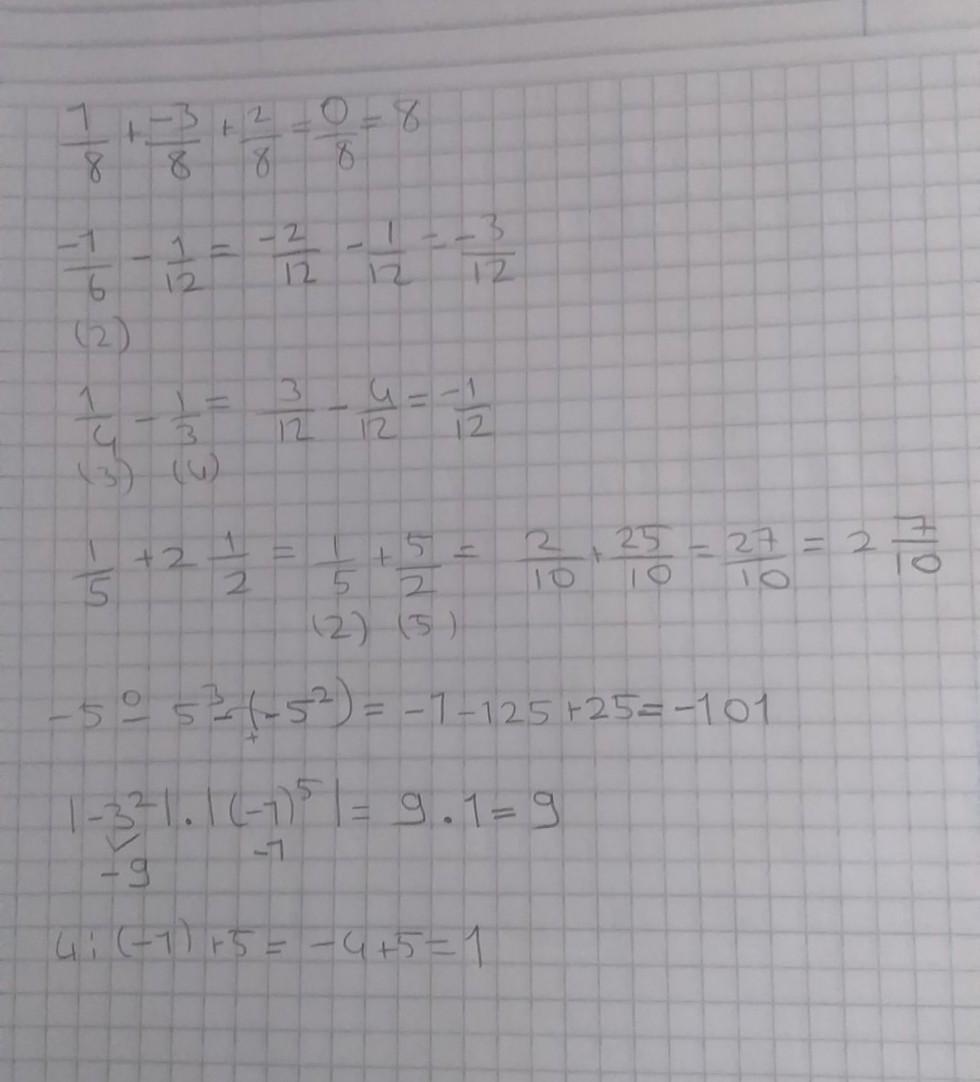 1/8 + -3/8 + 2/8 = 0/8 = 8
-1/6 - 1/12 = -2/12 - 1/12 = -3/12
(2)
1/4 - 1/3 = 3/12 - 4/12 = -1/12
(3) (4)
1/5 + 2 1/2 = 1/5 + 5/2 = 2/10 + 25/10 = 27/10 = 2 7/10
(2) (5)
-5⁰ - 5³ - (-5²) = -1 - 125 + 25 = -101
+
|-3²| . |(-1)⁵| = 9 . 1 = 9
-9 -1
4 : (-1) + 5 = -4 + 5 = 1